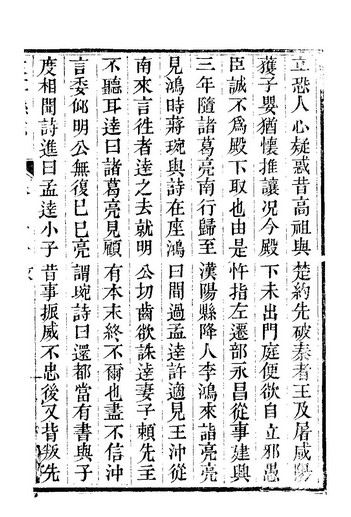 立恐人心疑惑昔高祖與楚約先破秦者王及屠咸陽
獲子嬰猶懷推讓況今殿下未出門庭便欲自立邪愚
臣誠不爲殿下取也由是忤指左遷部永昌從事建興
三年隨諸葛亮南行歸至漢陽縣降人李鴻來詣亮亮
見鴻時蔣琬與詩在座鴻曰間過孟達許適見王沖從
南來言徃者達之去就明公切齒欲誅達妻子賴先主
不聽耳達曰諸葛亮見顧有本末終不爾也盡不信沖
言委仰明公無復已已亮謂琬詩曰還都當有書與子
度相聞詩進曰孟達小子昔事振威不忠後又背叛先